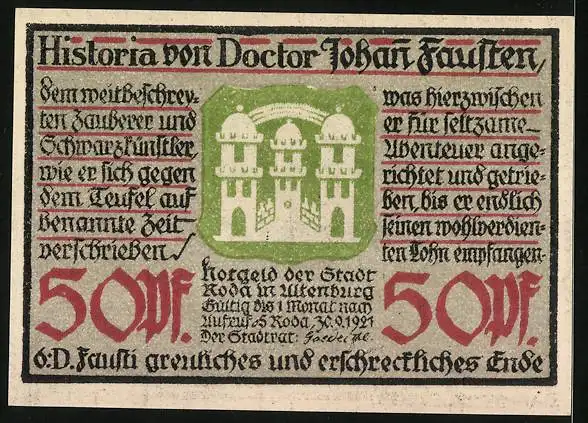 Historia von Doctor Johañ Fausten,
dem weitbeschrey-
ten Zauberer und
Schwarzkünstler,
wie er sich gegen
dem Teufel auf
benannte Zeit
verschrieben
was hierzwischen
er für seltzame
Abenteuer ange-
richtet und getrie-
ben, bis er endlich
seinen wohlverdien-
ten Lohn empfangen-
50Pf.
Notgeld der Stadt
Roda in Altenburg
Gültig bis 1 Monat nach
Aufruf · S Roda, 30.9.1921
Der Stadtrat:
50Pf.
6: D. Fausti greuliches und erschreckliches Ende